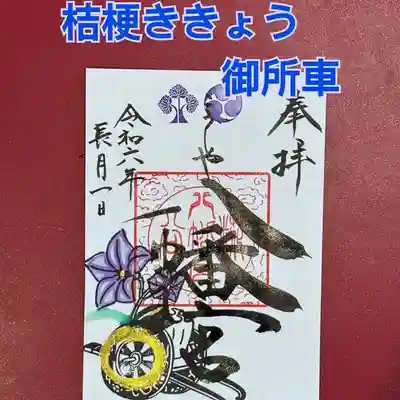 桔梗ききょう
御所車
奉拝
八幡宮
令和六年
長月一日